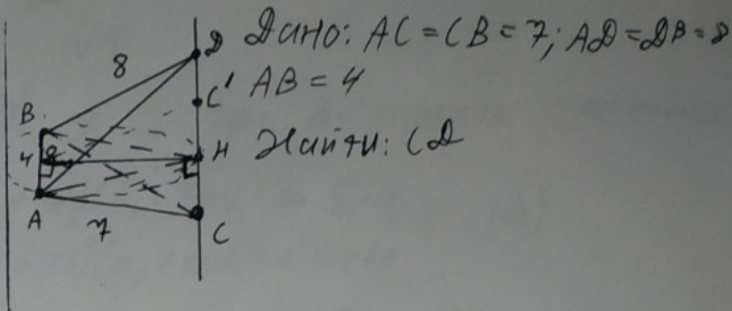 Дано: AC = CB = 7; AD = DB = 8
AB = 4
Найти: CD
D
8
C'
B
4
H
A
7
C